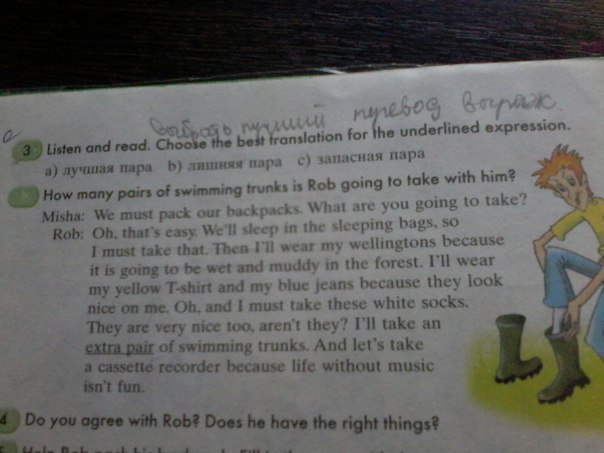 выбрать лучший перевод выраж.
3 Listen and read. Choose the best translation for the underlined expression.
a) лучшая пара b) лишняя пара c) запасная пара
How many pairs of swimming trunks is Rob going to take with him?
Misha: We must pack our backpacks. What are you going to take?
Rob: Oh, that's easy. We'll sleep in the sleeping bags, so
I must take that. Then I'll wear my wellingtons because
it is going to be wet and muddy in the forest. I'll wear
my yellow T-shirt and my blue jeans because they look
nice on me. Oh, and I must take these white socks.
They are very nice too, aren't they? I'll take an
extra pair of swimming trunks. And let's take
a cassette recorder because life without music
isn't fun.
4 Do you agree with Rob? Does he have the right things?